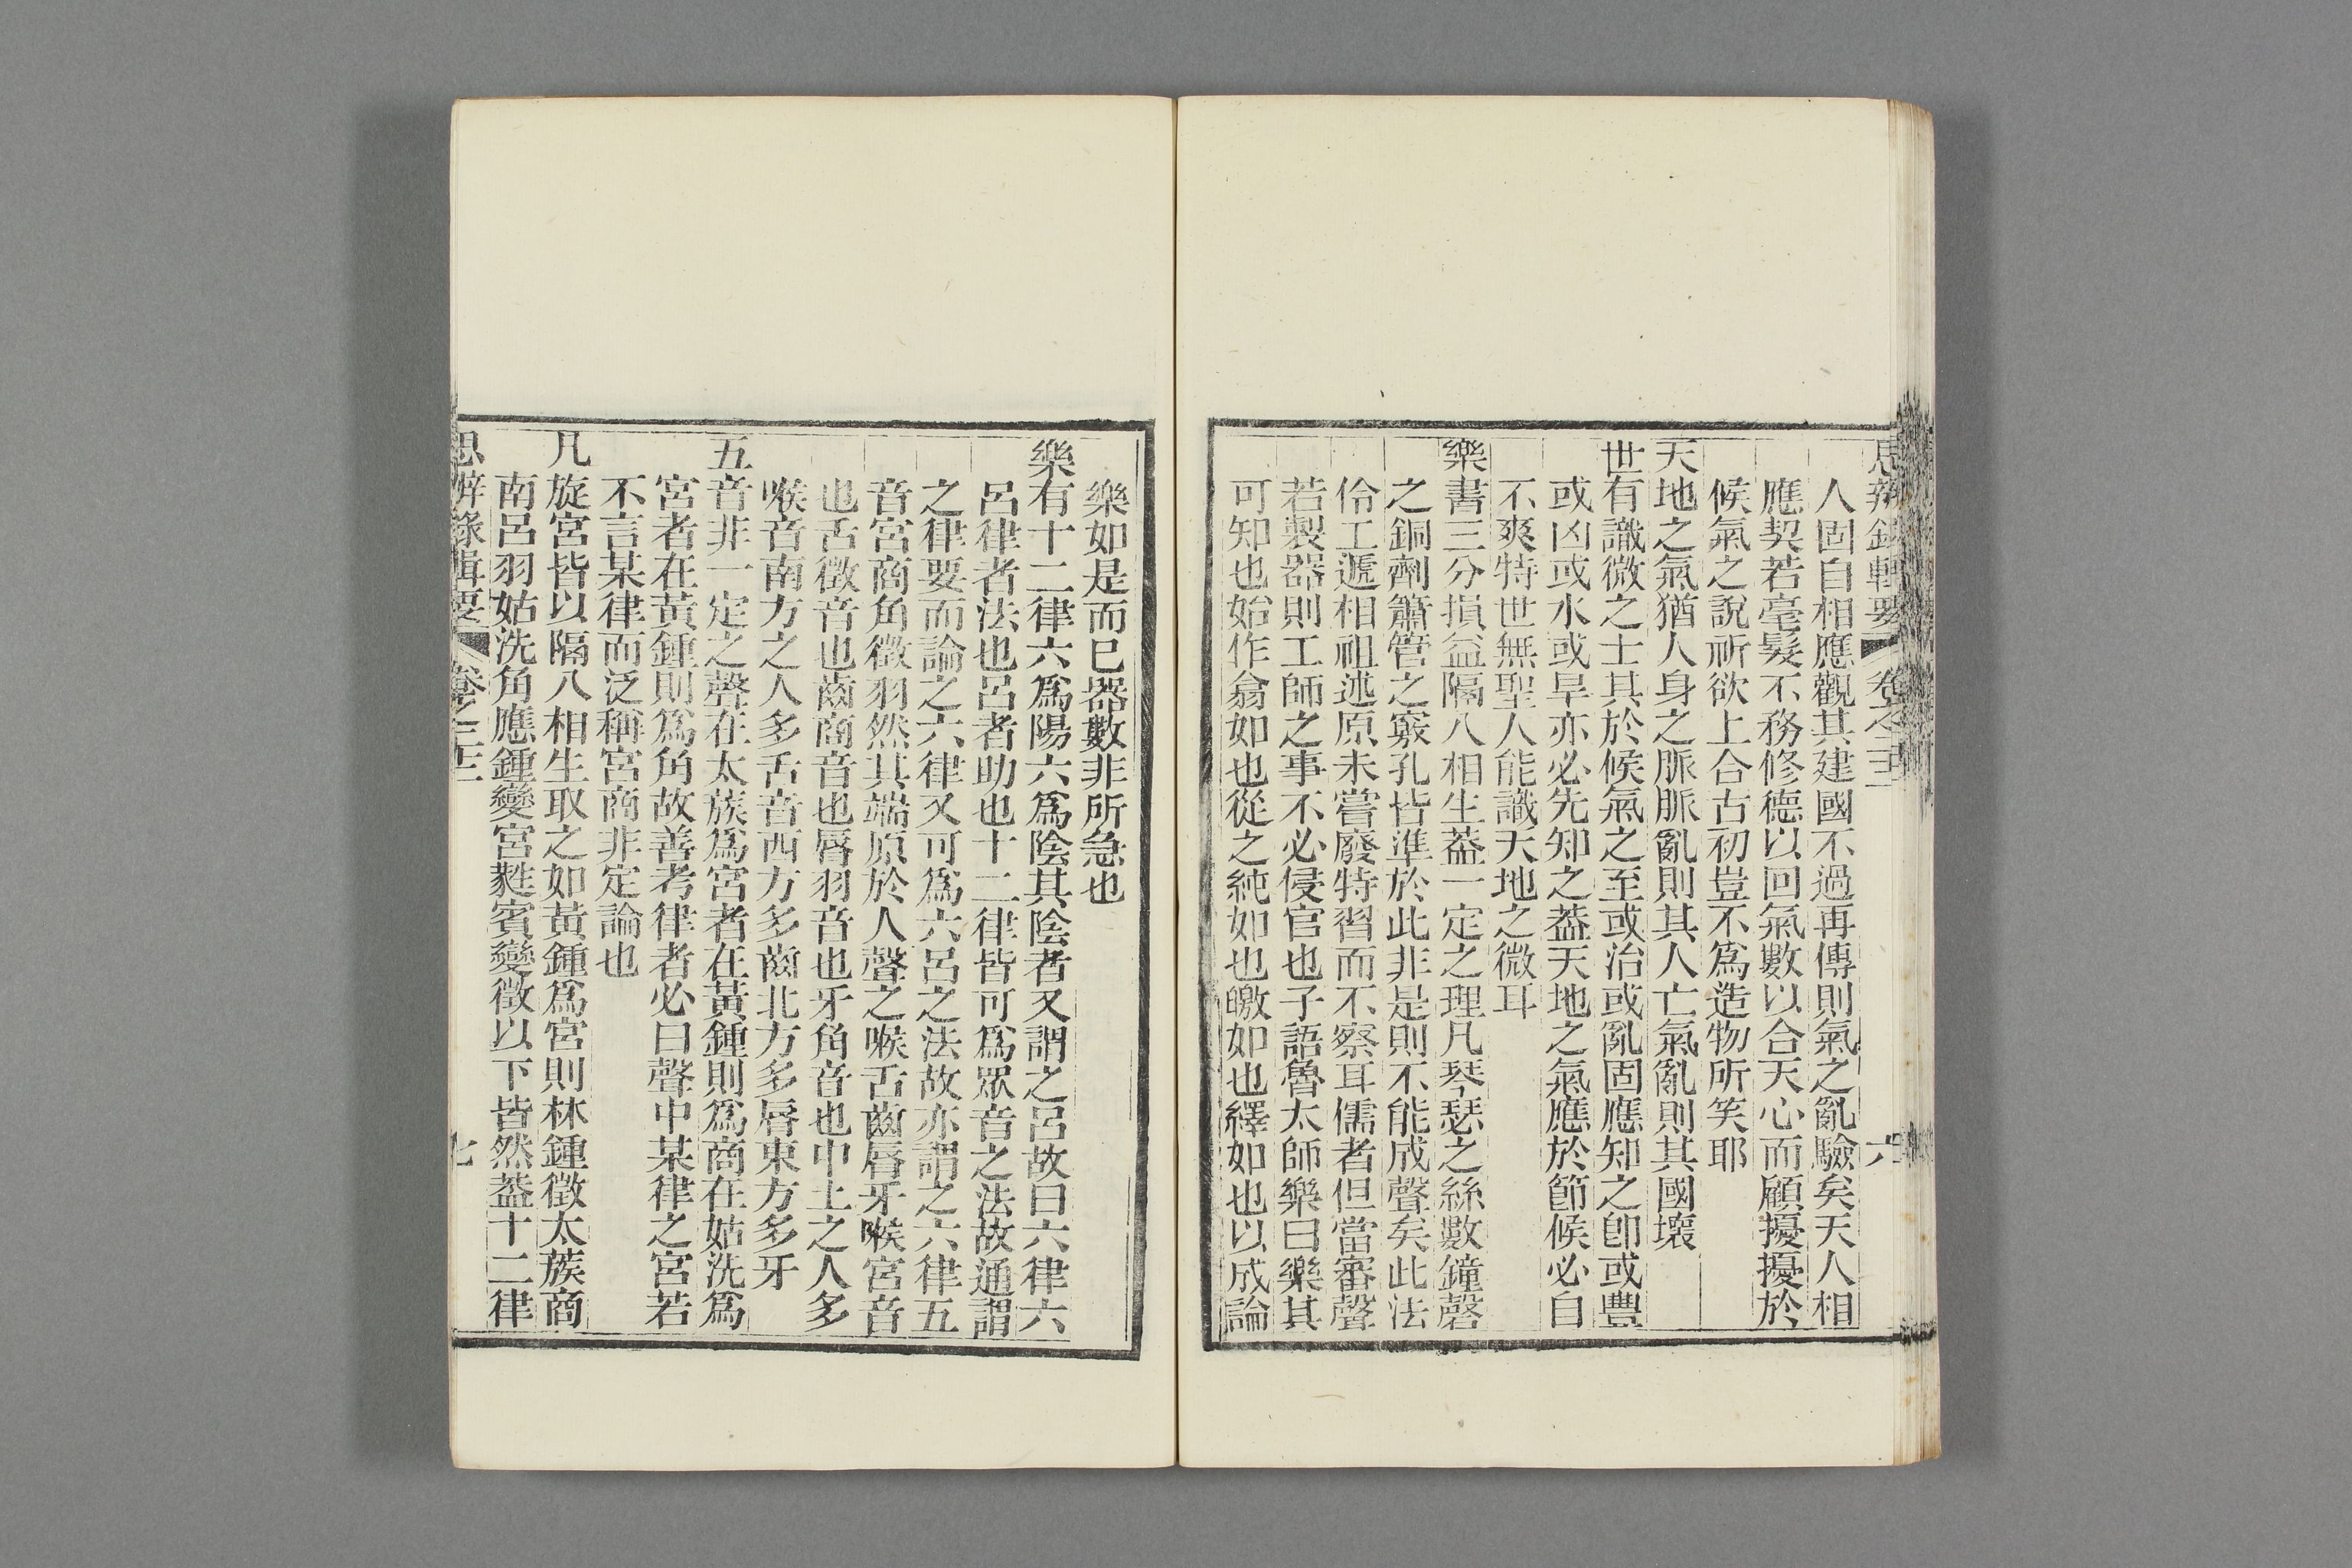 思辨錄輯要 卷之三十二 六
人固自相應觀其建國不過再傳則氣之亂驗矣天人相
應契若毫髮不務修德以回氣數以合天心而顧擾擾於
候氣之說祈欲上合古初豈不爲造物所笑耶
天地之氣猶人身之脈脈亂則其人亡氣亂則其國壞
世有識微之士其於候氣之至或治或亂固應知之卽或豐
或凶或水或旱亦必先知之葢天地之氣應於節候必自
不爽特世無聖人能識天地之微耳
樂書三分損益隔八相生葢一定之理凡琴瑟之絲數鐘磬
之銅劑簫管之竅孔皆準於此非是則不能成聲矣此法
伶工遞相祖述原未嘗廢特習而不察耳儒者但當審聲
若製器則工師之事不必侵官也子語魯太師樂曰樂其
可知也始作翕如也從之純如也皦如也繹如也以成論
樂如是而已器數非所急也
樂有十二律六爲陽六爲陰其陰者又謂之呂故曰六律六
呂律者法也呂者助也十二律皆可爲眾音之法故通謂
之律要而論之六律又可爲六呂之法故亦謂之六律五
音宮商角徵羽然其端原於人聲之喉舌齒唇牙喉宮音
也舌徵音也齒商音也唇羽音也牙角音也中土之人多
喉音南方之人多舌音西方多齒北方多唇東方多牙
五音非一定之聲在太蔟爲宮者在黃鍾則爲商在姑洗爲
宮者在黃鍾則爲角故善考律者必曰聲中某律之宮若
不言某律而泛稱宮商非定論也
凡旋宮皆以隔八相生取之如黃鍾爲宮則林鍾徵太蔟商
南呂羽姑洗角應鍾變宮蕤賓變徵以下皆然葢十二律
思辨錄輯要 卷之三十二 七